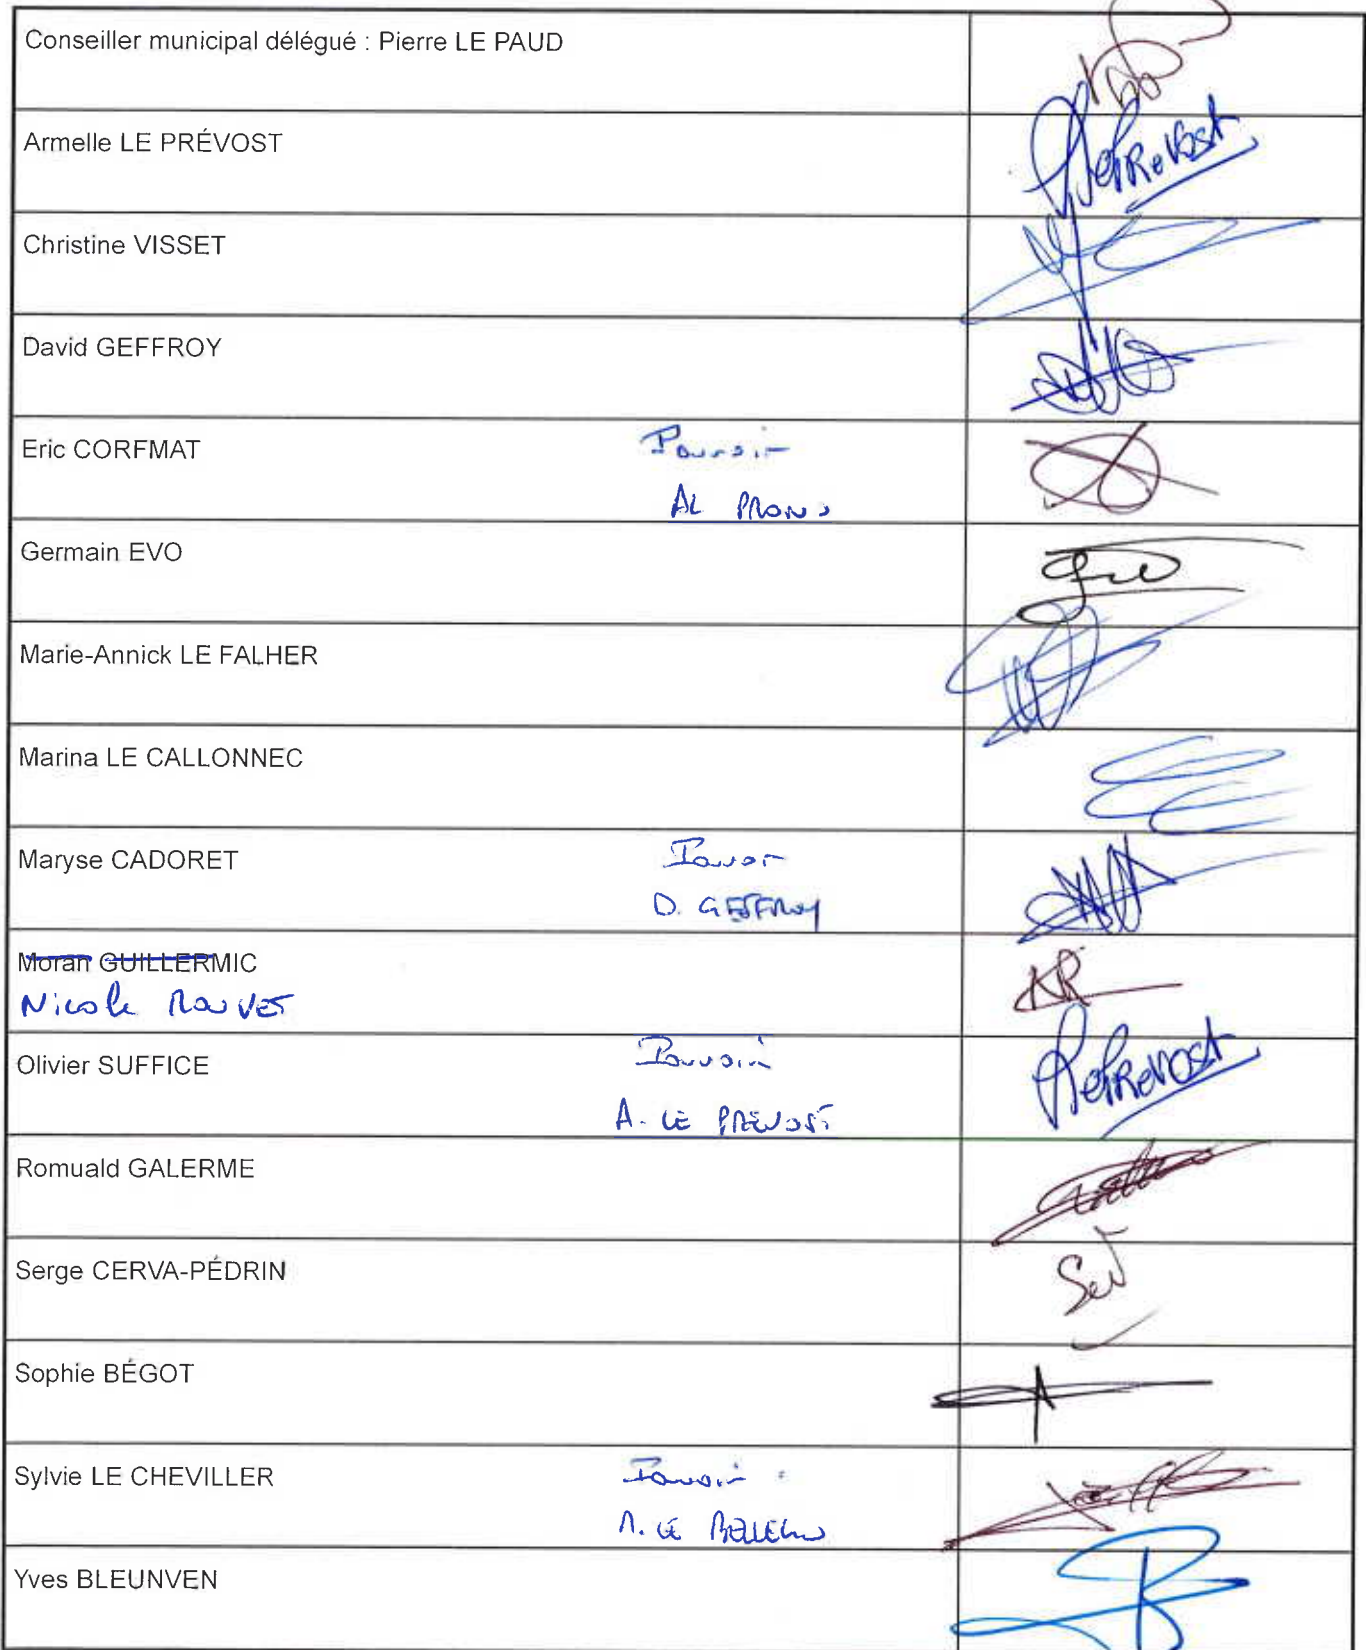 Conseiller municipal délégué : Pierre LE PAUD
Armelle LE PRÉVOST
LePrevost
Christine VISSET
David GEFFROY
Eric CORFMAT Pouvoir
AL
Germain EVO
Marie-Annick LE FALHER
Marina LE CALLONNEC
Maryse CADORET Pouvoir
D. GEFFROY
Moran GUILLERMIC
Nicole
Olivier SUFFICE Pouvoir
A. LE PRÉVOST
LePrevost
Romuald GALERME
Serge CERVA-PÉDRIN
Sophie BÉGOT
Sylvie LE CHEVILLER Pouvoir :
LE
Yves BLEUNVEN